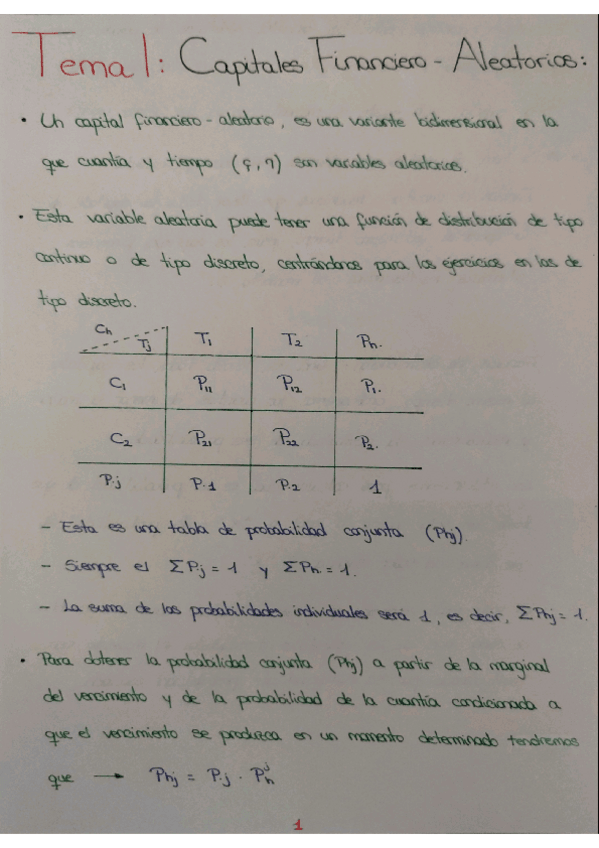 Tema 1: Capitales Financiero - Aleatorios:
• Un capital financiero - aleatorio, es una variante bidimensional en la
que cuantía y tiempo (ξ, η) son variables aleatorias.
• Esta variable aleatoria puede tener una función de distribución de tipo
continuo o de tipo discreto, centrándonos para los ejercicios en las de
tipo discreto.
Ch Tj T1 T2 Ph.
C1 P11 P12 P1.
C2 P21 P22 P2.
P.j P.1 P.2 1
- Esta es una tabla de probabilidad conjunta (Phj).
- Siempre el ΣP.j = 1 y ΣPh. = 1.
- La suma de las probabilidades individuales será 1, es decir, ΣPhj = 1.
• Para obtener la probabilidad conjunta (Phj) a partir de la marginal
del vencimiento y de la probabilidad de la cuantía condicionada a
que el vencimiento se produzca en un momento determinado tendremos
que → Phj = P.j · Pʲh
1